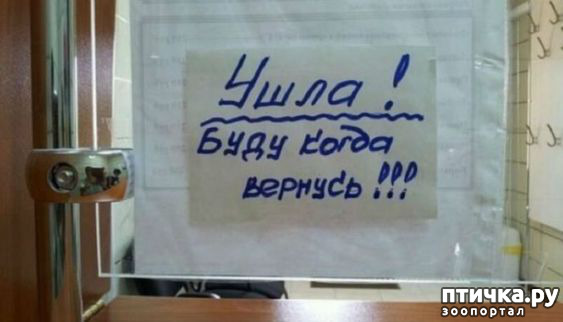 Ушла!
Буду когда
вернусь!!!
птичка.ру
зоопортал